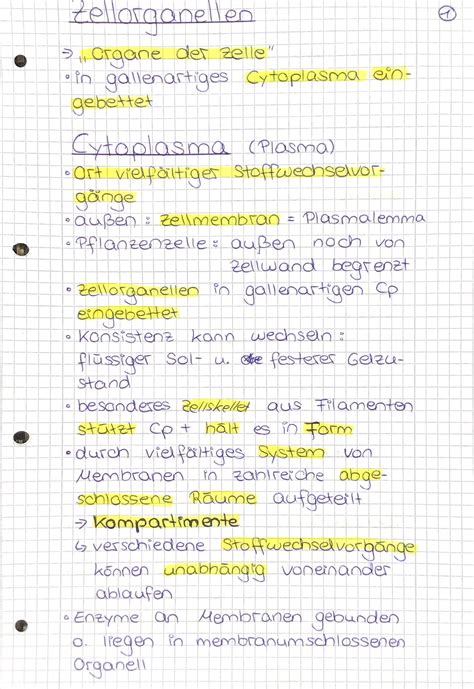 Zellorganellen ①
→ „Organe der Zelle"
• in gallenartiges Cytoplasma ein-
gebettet
Cytoplasma (Plasma)
• Ort vielfältiger Stoffwechselvor-
gänge
• außen : Zellmembran = Plasmalemma
• Pflanzenzelle : außen noch von
Zellwand begrenzt
• Zellorganellen in gallenartigen Cp
eingebettet
• Konsistenz kann wechseln :
flüssiger Sol- u. festerer Gelzu-
stand
• besonderes Zellskelet aus Filamenten
stützt Cp + hält es in Form
• durch vielfältiges System von
Membranen in zahlreiche abge-
schlossene Räume aufgeteilt
→ Kompartimente
↳ verschiedene Stoffwechselvorgänge
können unabhängig voneinander
ablaufen
• Enzyme an Membranen gebunden
o. liegen in membranumschlossenen
Organell